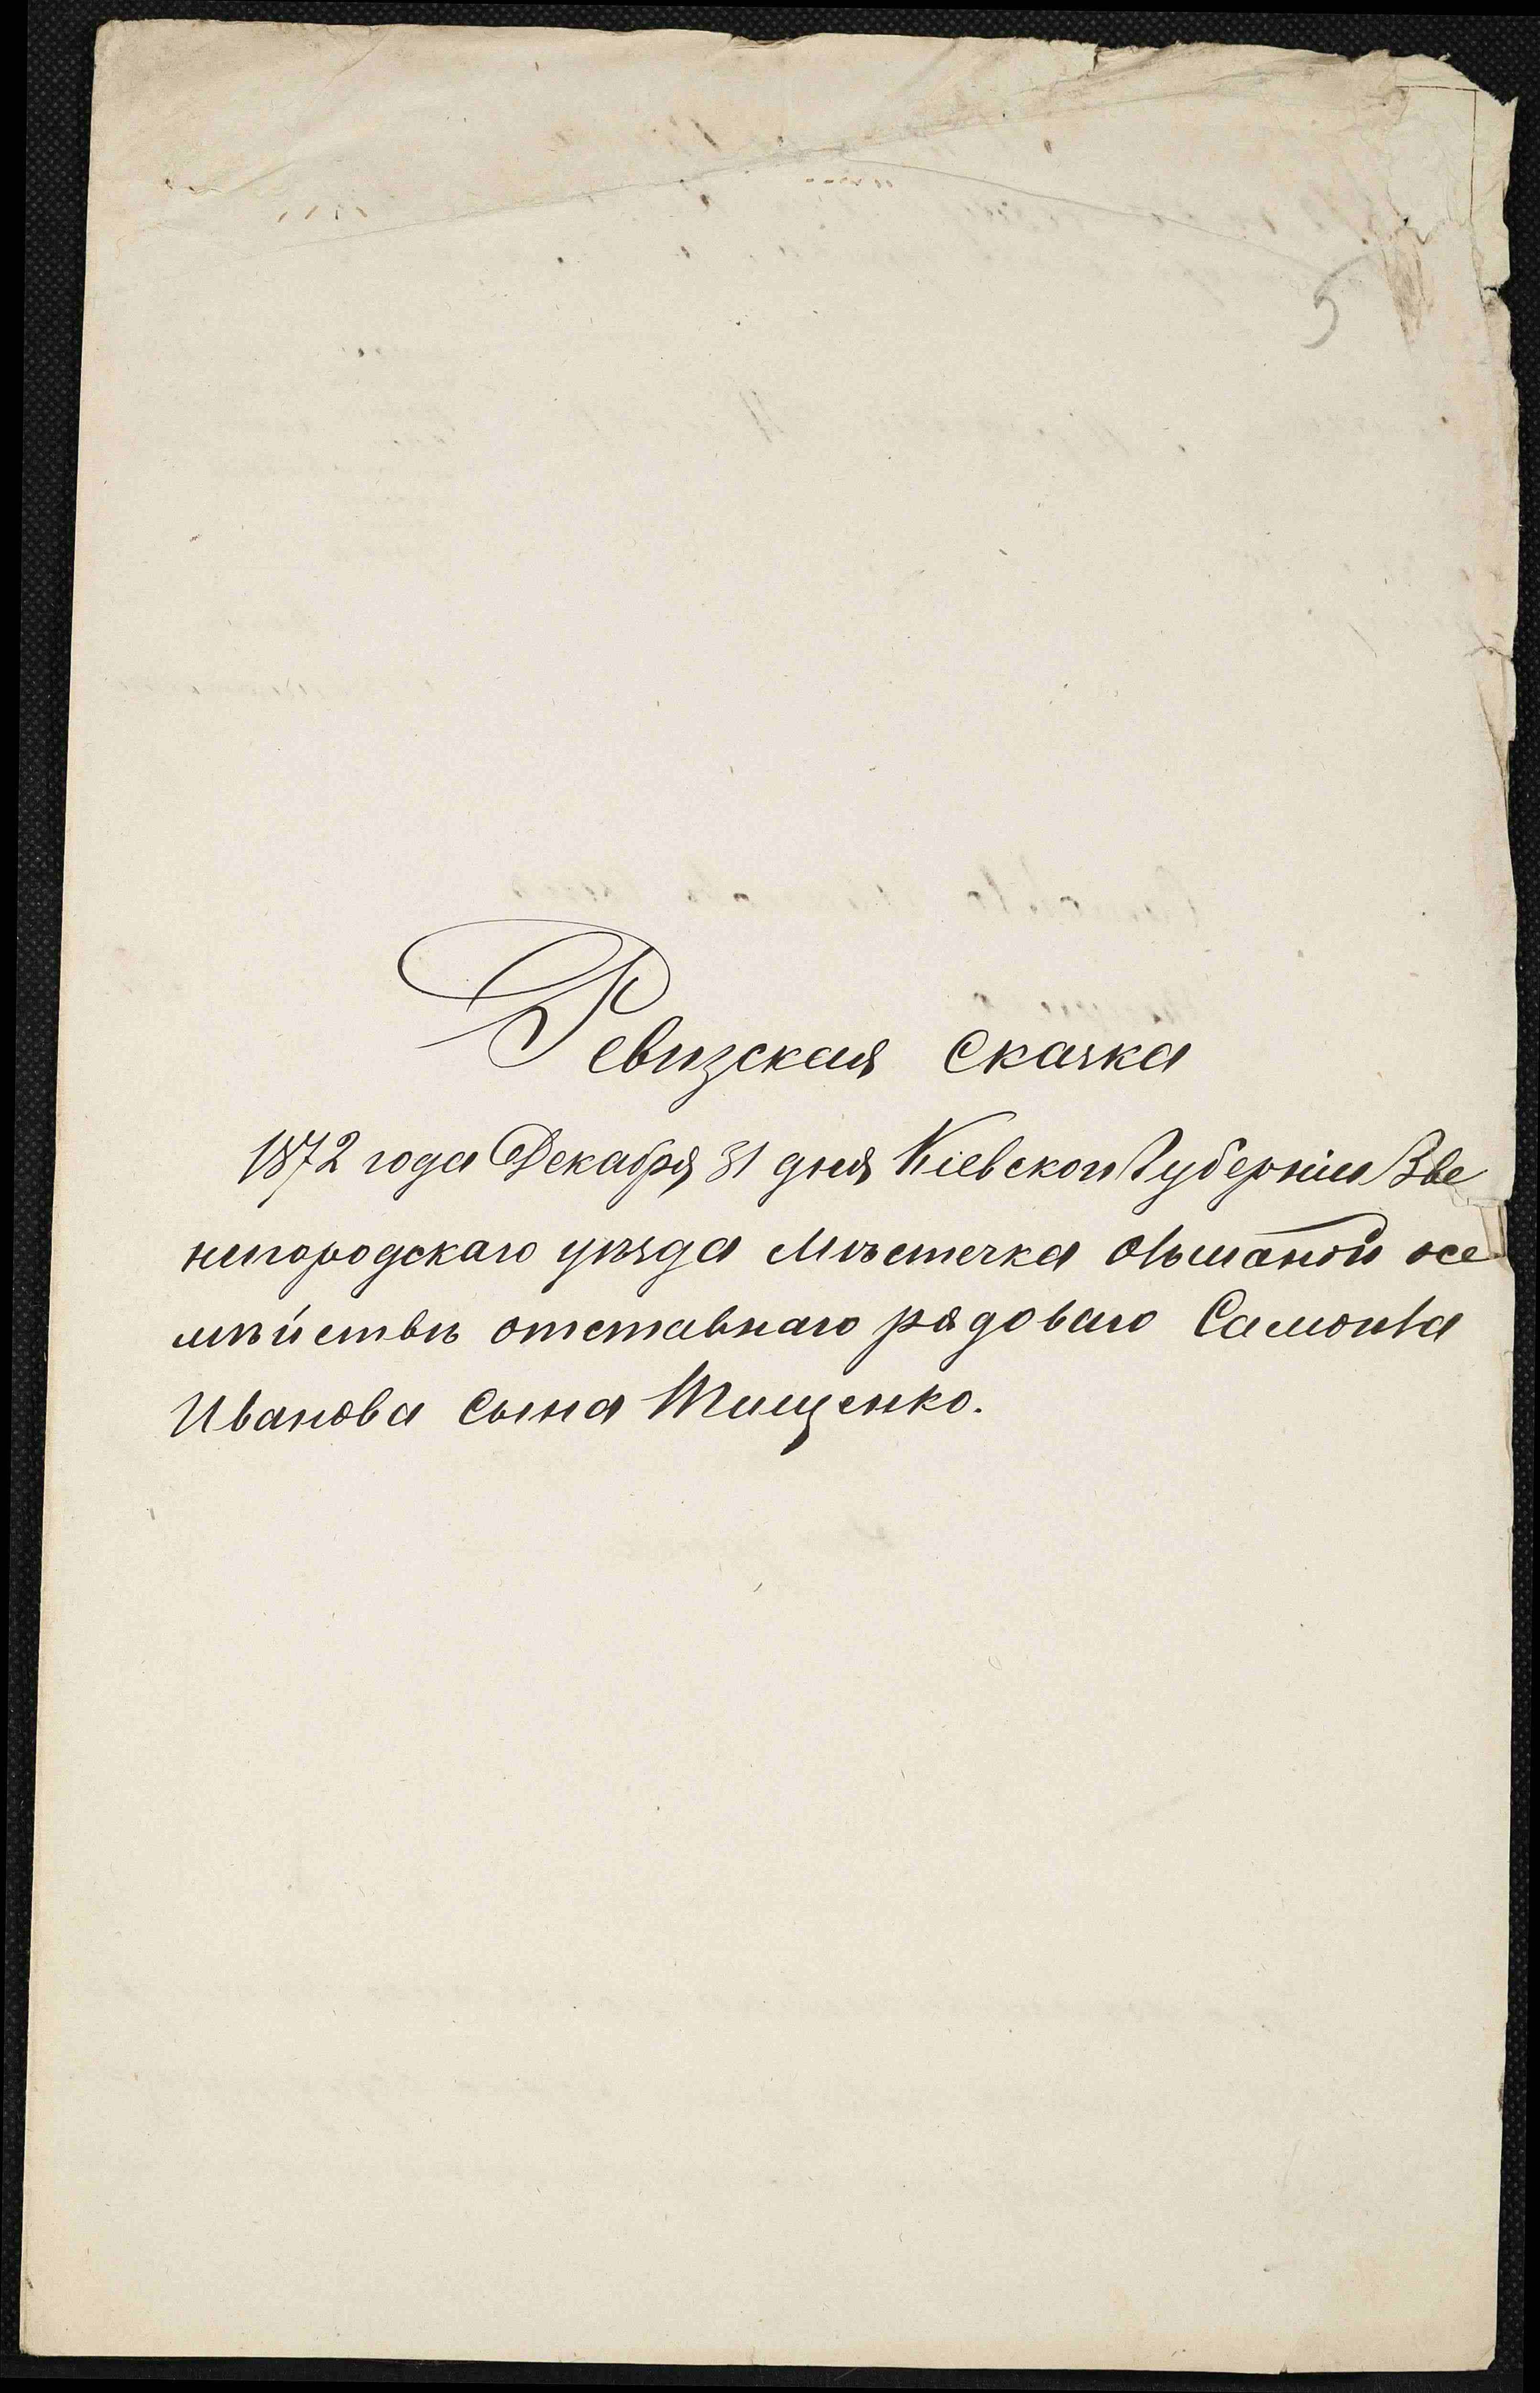 5
Ревизская Сказка
1872 года Декабря 31 дня Кіевской Губерніи Зве
нигородскаго уѣзда Мѣстечка Ольшаной осе
мѣйствѣ отставнаго рядоваго
Иванова Сына Тищенко.